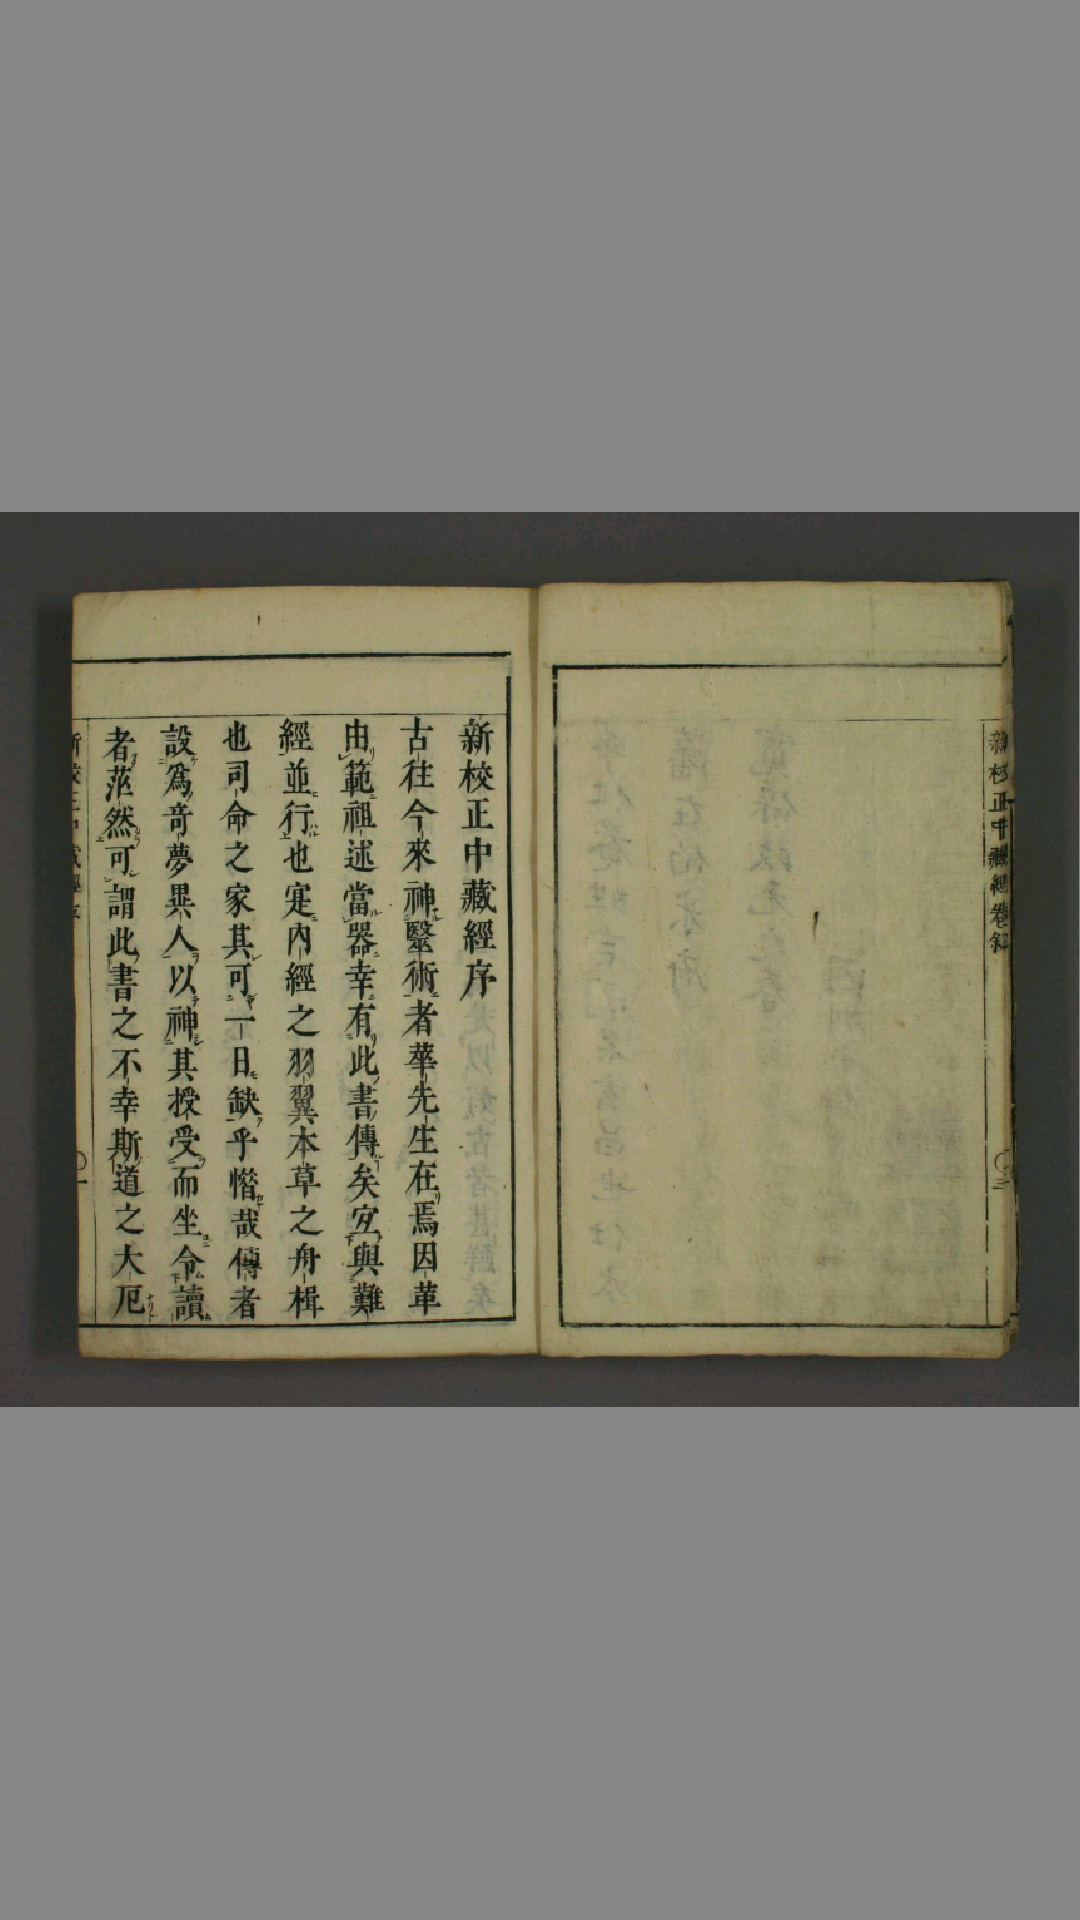 新校正中藏經卷
新校正中藏經序
古往今來神毉術者華先生在焉因華
由範祖述當器幸有此書傳矣宜與難
經並行也寔內經之羽翼本草之舟楫
也司命之家其可一日缺乎惜哉傳者
設爲奇夢異人以神其授受而坐令讀
者茫然可謂此書之不幸斯道之大厄